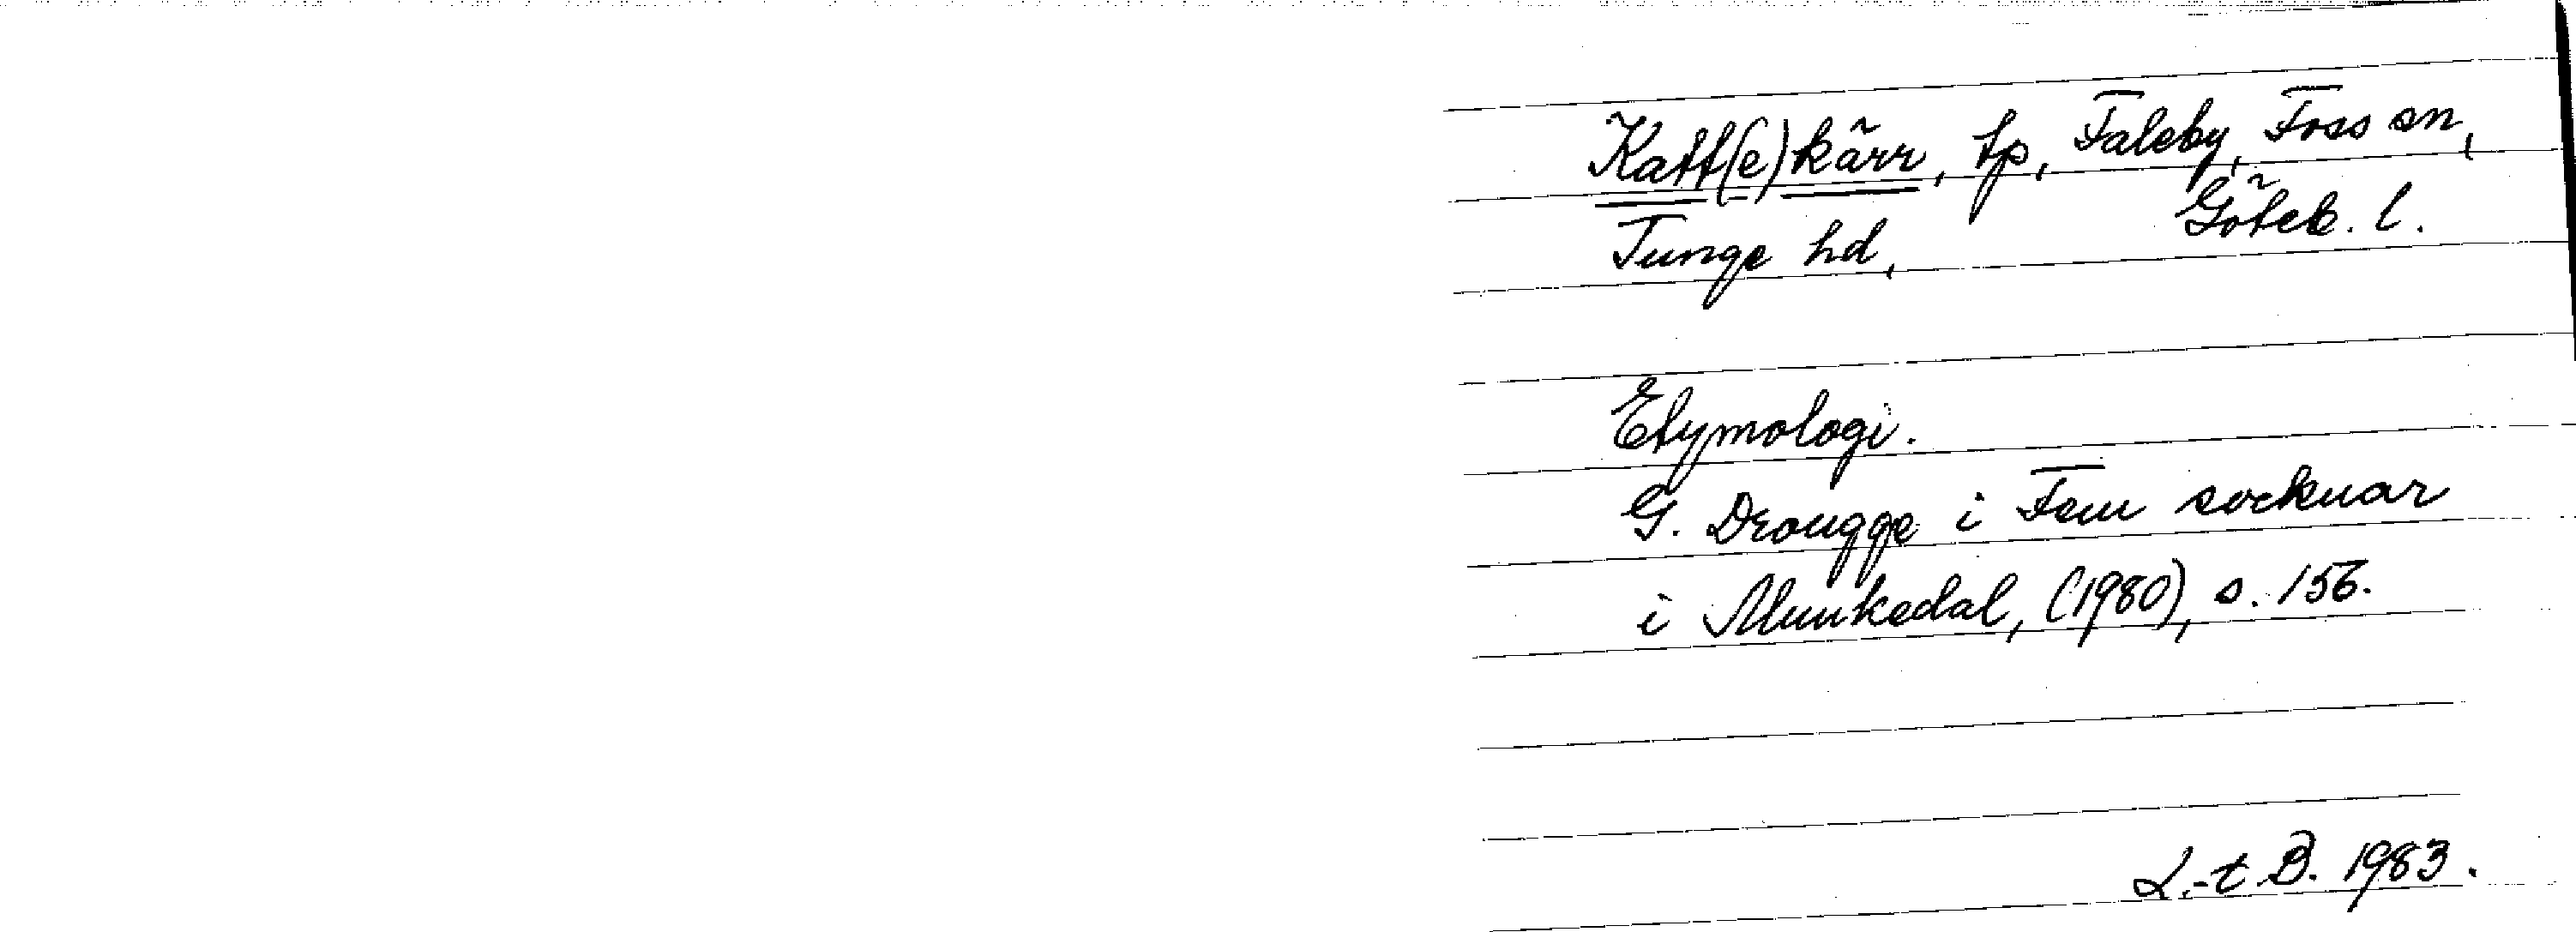 Katt(e)kärr, tp, Faleby, Foss sn,
Tunge hd, Göteb. l.
Etymologi.
G. Drougge i Fem socknar
i Munkedal, (1980), s. 156.
L.-t B. 1983.